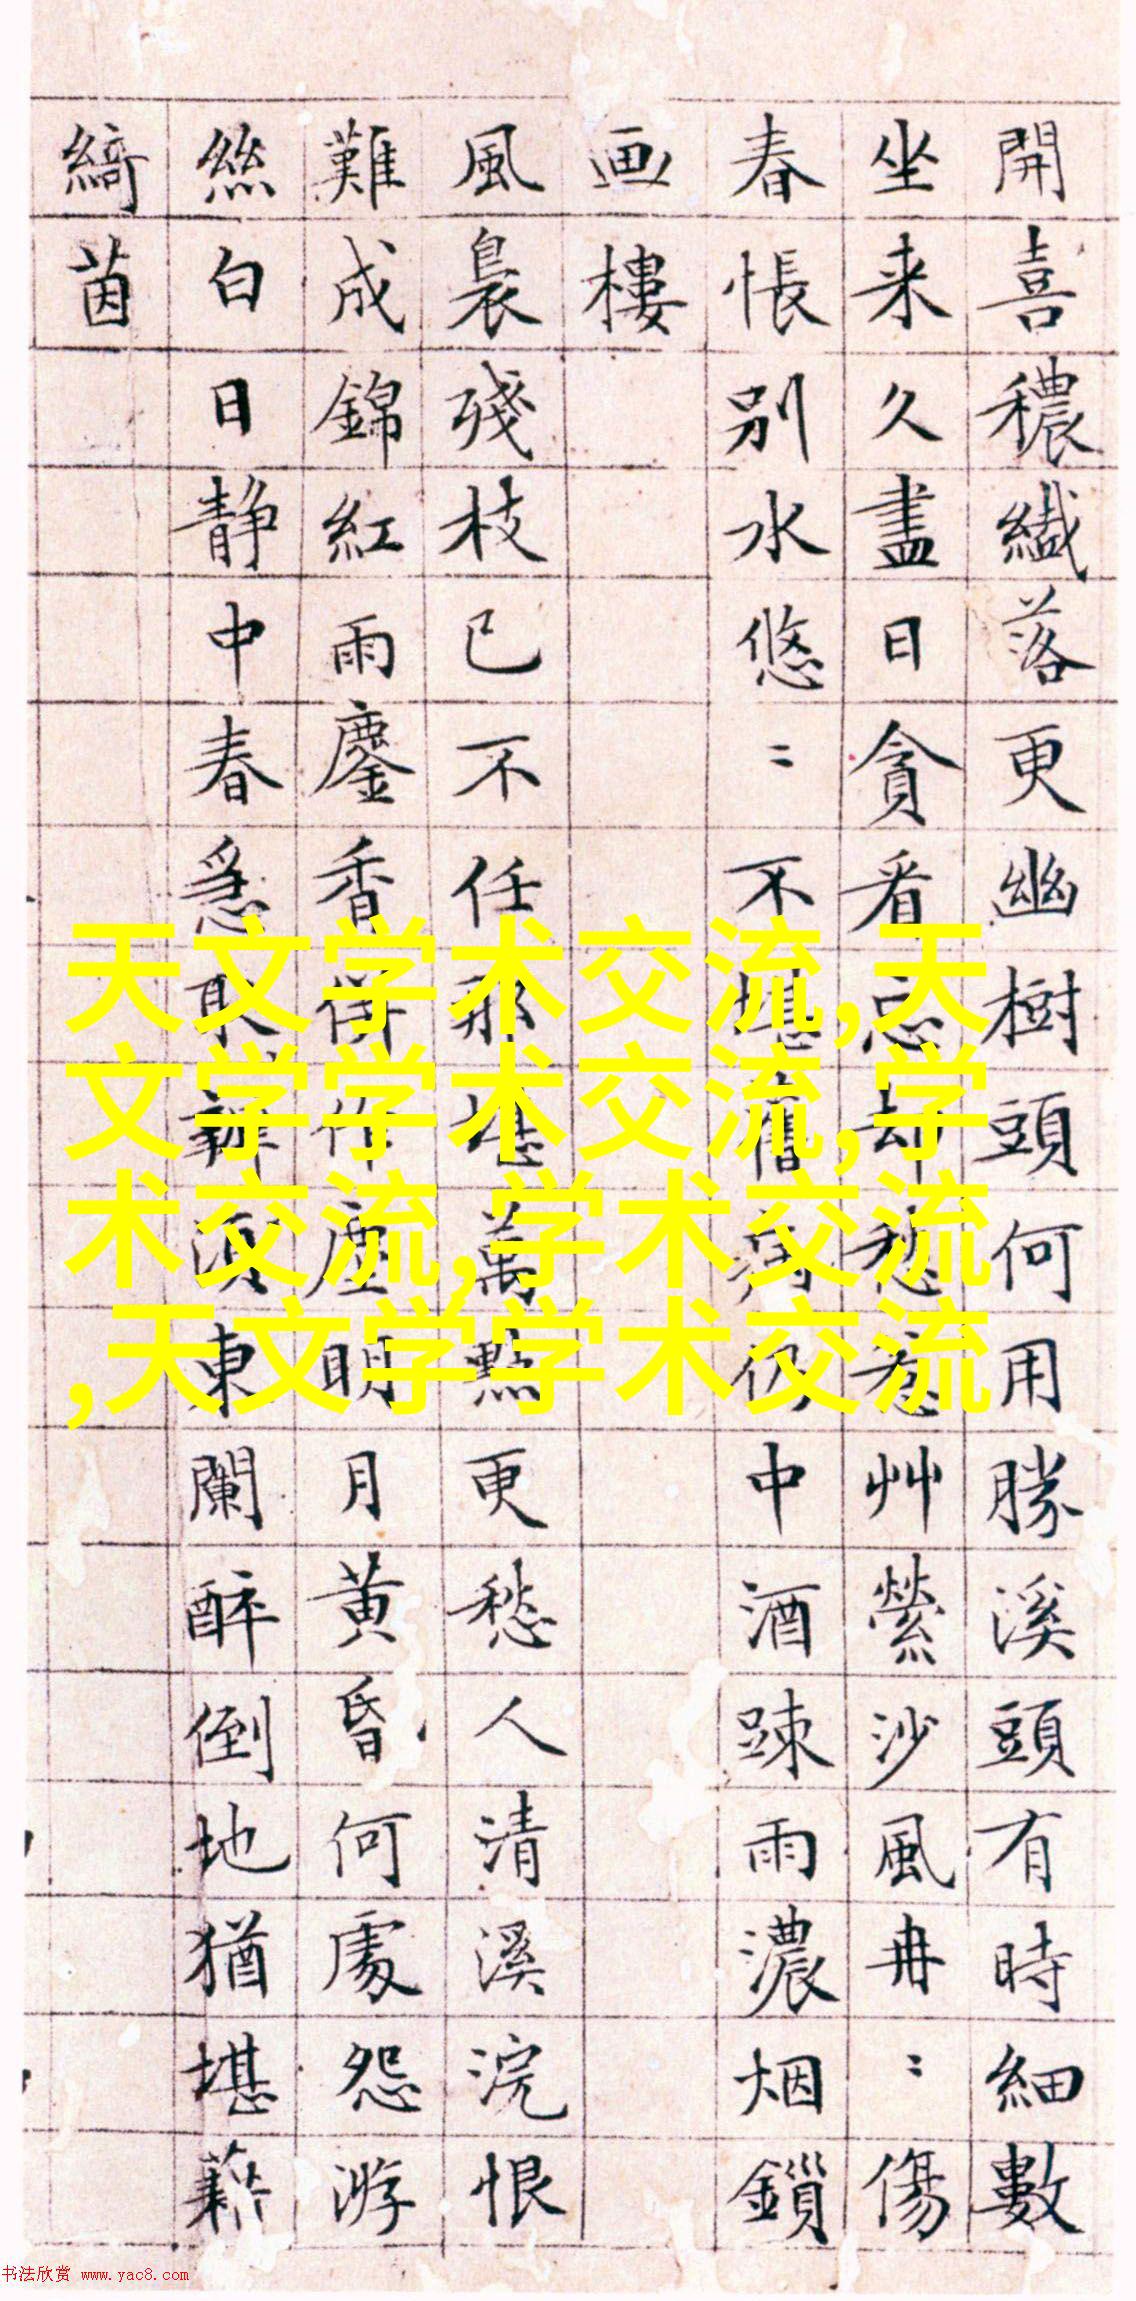 開喜穠纎落更幽樹頭何用勝溪頭有時細數
坐来久盡日貪看忘却愁惹艸縈沙風冉〻傷
春悵别水悠〻不堪舊病仍中酒踈雨濃烟鎻
画樓
風裊殘枝已不任那堪萬點更愁人清溪浣恨
難成錦紅雨鏖香併作塵明月黄昏何處怨游
絲白日静中春急取辭須東闌醉倒地猶堪藉
綺茵
天文学术交流,天
文学学术交流,学
术交流,学术交流
,天文学学术交流
书法欣赏 www.yac8.com